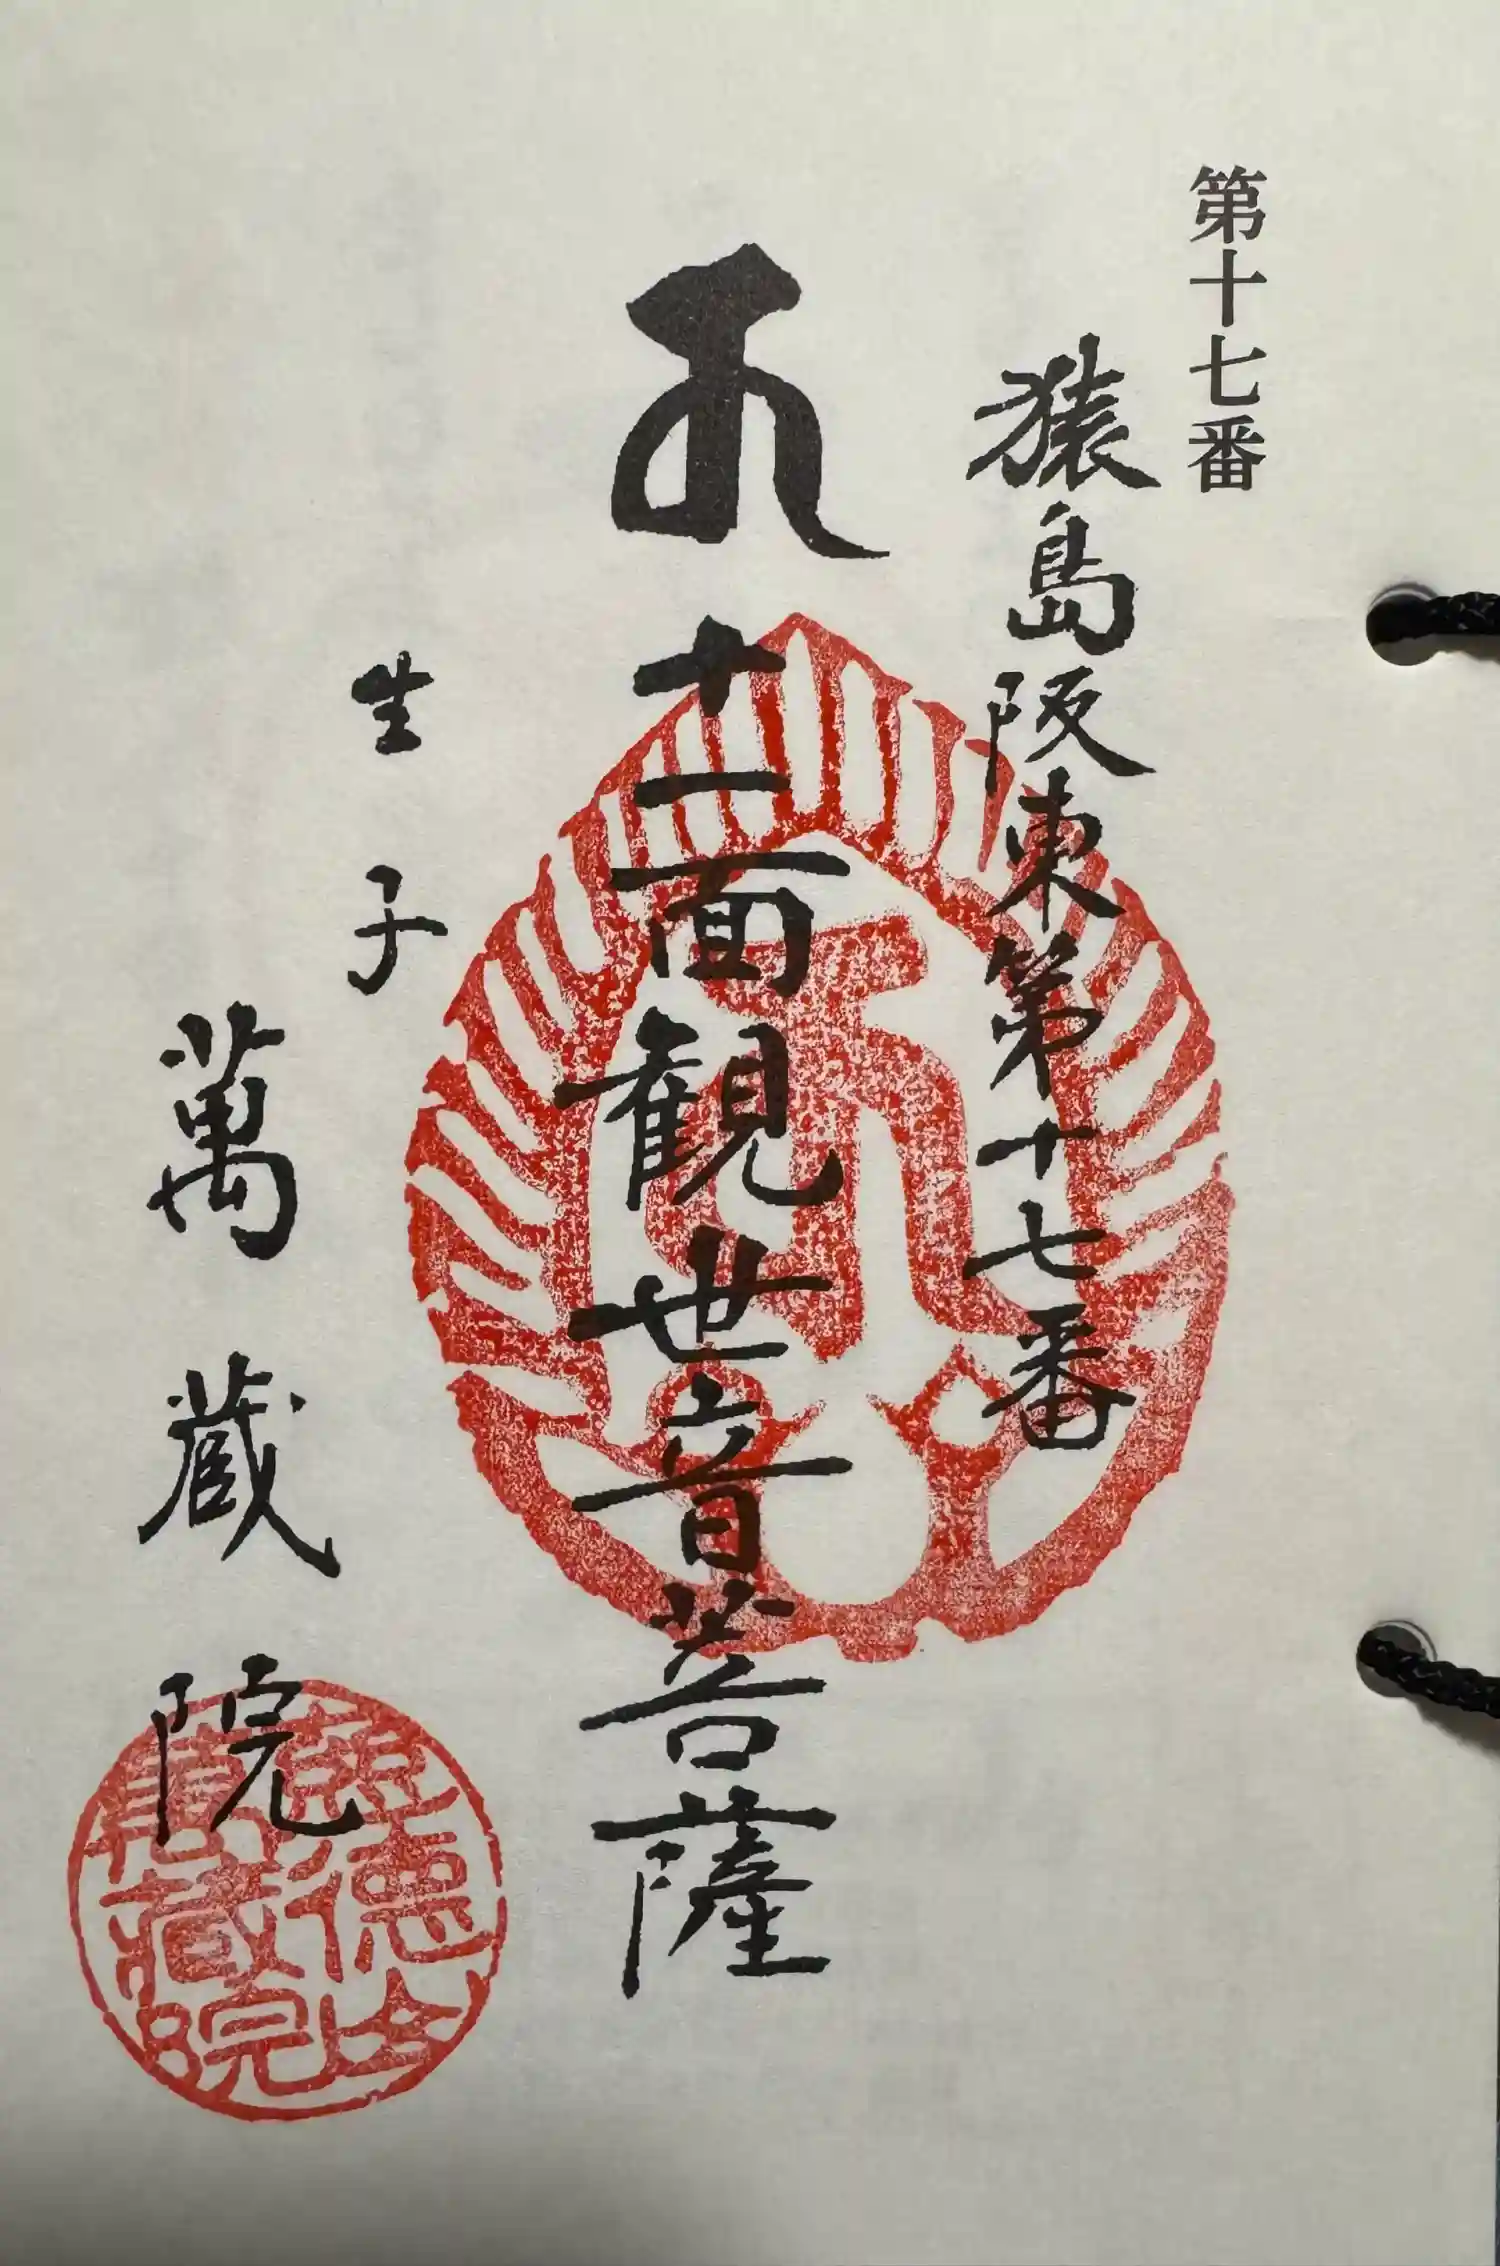 第十七番
猿島阪東第十七番
十一面観世音菩薩
生子
萬蔵院
慈德山
萬藏院